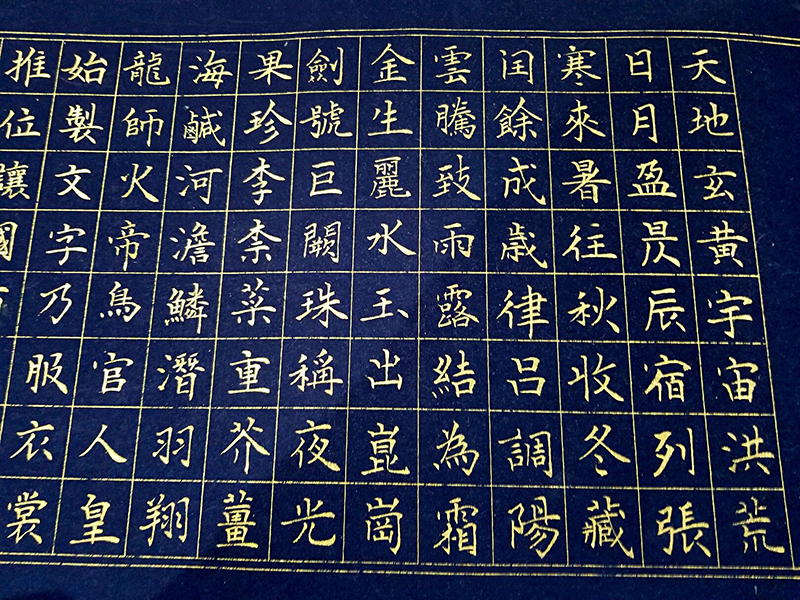 天地玄黄宇宙洪荒
日月盈昃辰宿列張
寒來暑往秋收冬藏
閏餘成歳律呂調陽
雲騰致雨露結為霜
金生麗水玉出崑崗
劍號巨闕珠稱夜光
果珍李柰菜重芥薑
海鹹河澹鱗潛羽翔
龍師火帝鳥官人皇
始製文字乃服衣裳
推位讓國